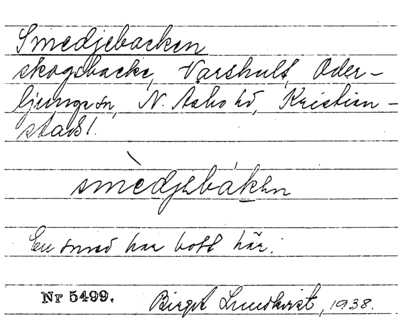 Smedjebacken
skogsbacke, Varshult, Oder-
ljunga sn, N. Åsbo hd, Kristian-
stads l.
smèdjebákɛn
En smed har bott här.
Nr 5499. Birgit Lundkvist, 1938.